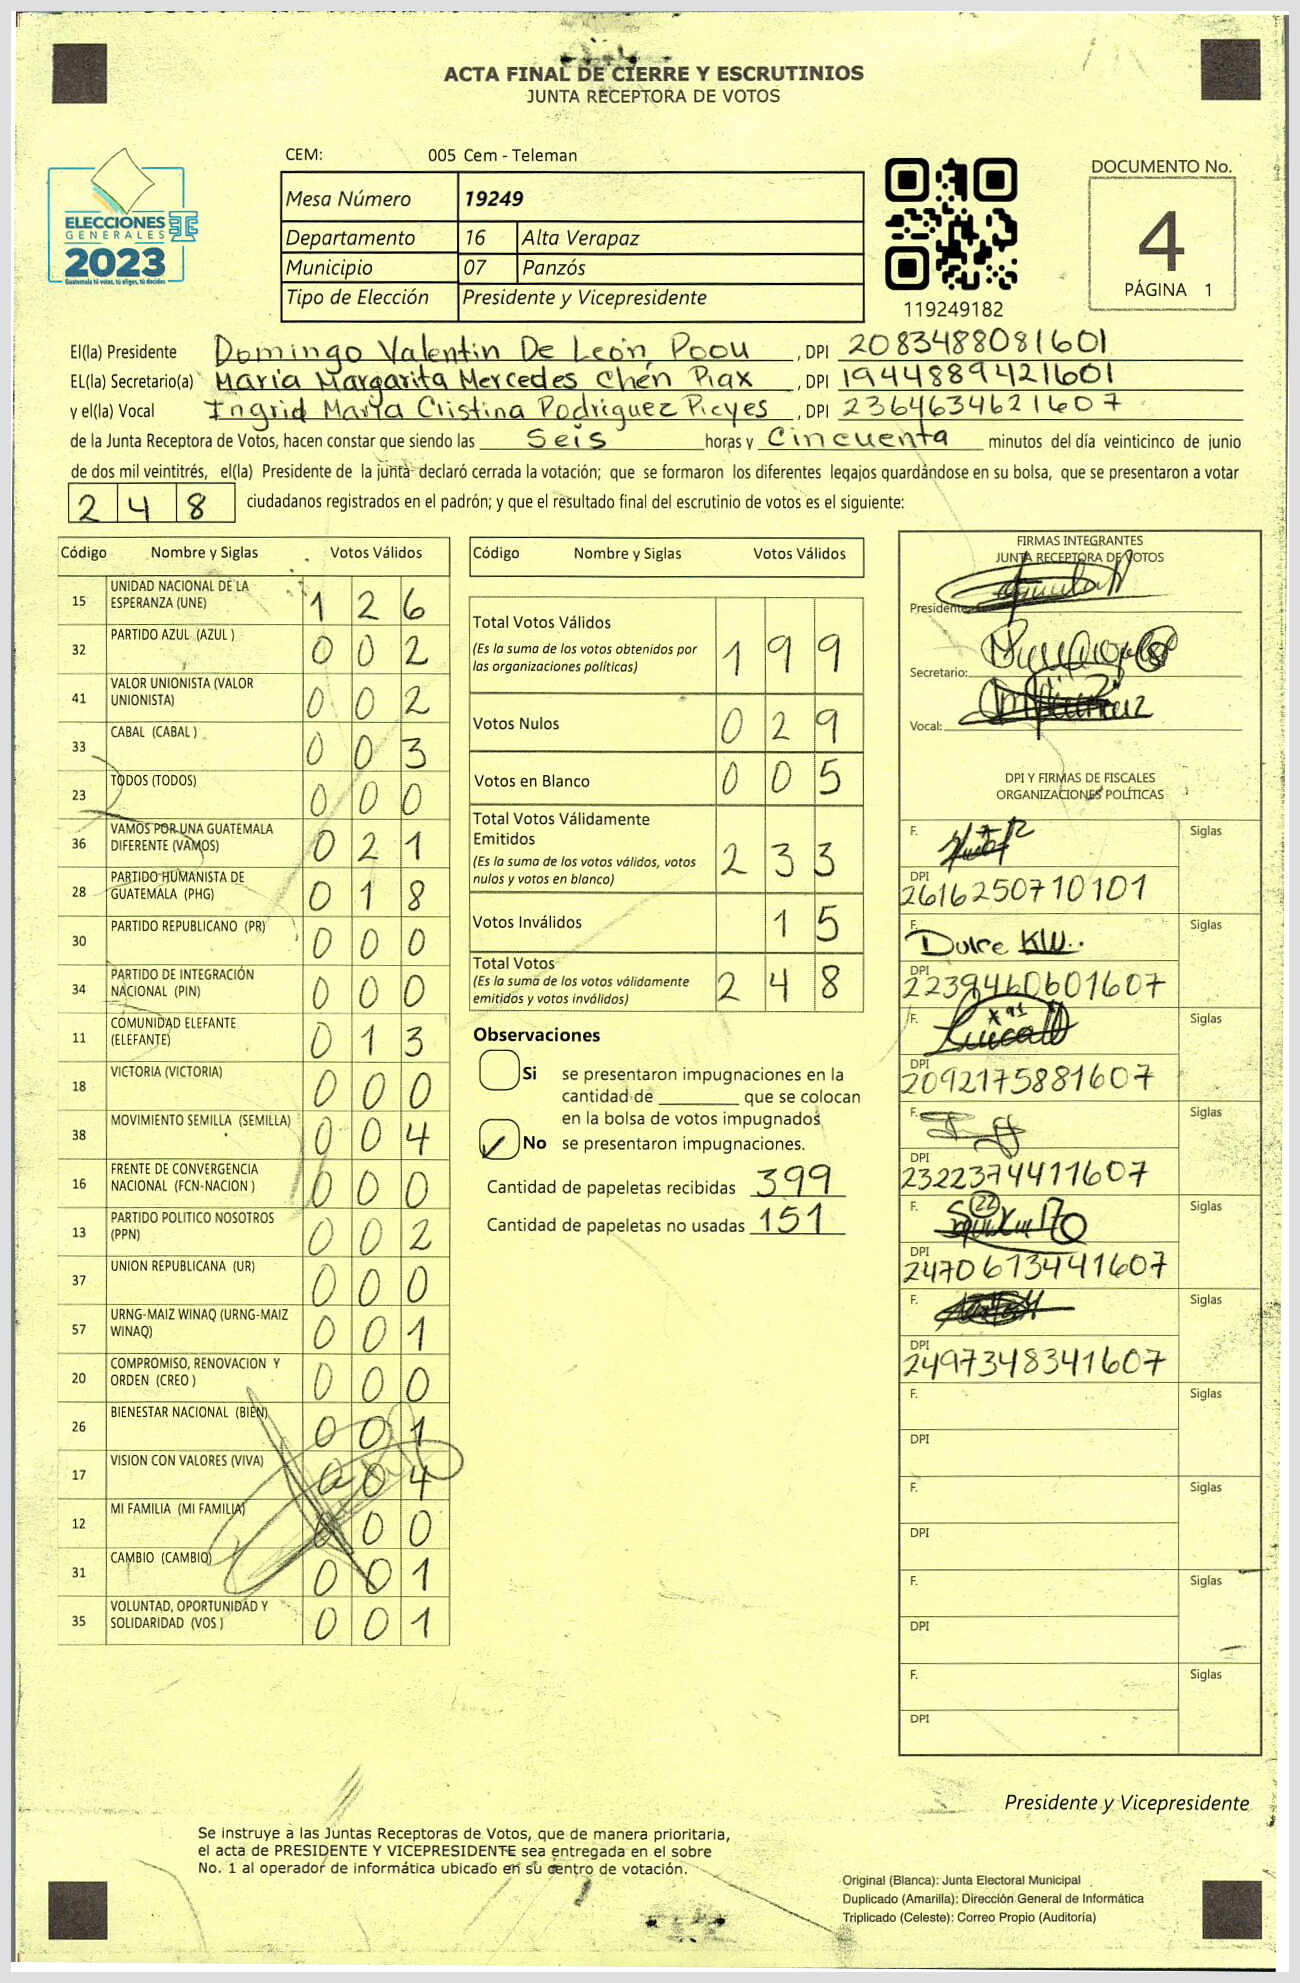 ACTA FINAL DE CIERRE Y ESCRUTINIOS
JUNTA RECEPTORA DE VOTOS
ELECCIONES
GENERALES
2023
Guatemala tú votas, tú eliges, tú decides
CEM: 005 Cem - Teleman
Mesa Número 19249
Departamento 16 Alta Verapaz
Municipio 07 Panzós
Tipo de Elección Presidente y Vicepresidente
119249182
DOCUMENTO No.
4
PÁGINA 1
El(la) Presidente Domingo Valentin De León Poou, DPI 2083488081601
EL(la) Secretario(a) Maria Margarita Mercedes Chén Piax, DPI 1944889421601
y el(la) Vocal Ingrid Marya Cristina Rodriguez Pieyes, DPI 2364634621607
de la Junta Receptora de Votos, hacen constar que siendo las Seis horas y Cincuenta minutos del día veinticinco de junio
de dos mil veintitrés, el(la) Presidente de la junta declaró cerrada la votación; que se formaron los diferentes legajos guardándose en su bolsa, que se presentaron a votar
248 ciudadanos registrados en el padrón; y que el resultado final del escrutinio de votos es el siguiente:
Código Nombre y Siglas Votos Válidos
15 UNIDAD NACIONAL DE LA ESPERANZA (UNE) 126
32 PARTIDO AZUL (AZUL ) 002
41 VALOR UNIONISTA (VALOR UNIONISTA) 002
33 CABAL (CABAL ) 003
23 TODOS (TODOS) 000
36 VAMOS POR UNA GUATEMALA DIFERENTE (VAMOS) 021
28 PARTIDO HUMANISTA DE GUATEMALA (PHG) 018
30 PARTIDO REPUBLICANO (PR) 000
34 PARTIDO DE INTEGRACIÓN NACIONAL (PIN) 000
11 COMUNIDAD ELEFANTE (ELEFANTE) 013
18 VICTORIA (VICTORIA) 000
38 MOVIMIENTO SEMILLA (SEMILLA) 004
16 FRENTE DE CONVERGENCIA NACIONAL (FCN-NACION ) 000
13 PARTIDO POLITICO NOSOTROS (PPN) 002
37 UNION REPUBLICANA (UR) 000
57 URNG-MAIZ WINAQ (URNG-MAIZ WINAQ) 001
20 COMPROMISO, RENOVACION Y ORDEN (CREO ) 000
26 BIENESTAR NACIONAL (BIEN) 001
17 VISION CON VALORES (VIVA) 004
12 MI FAMILIA (MI FAMILIA) 000
31 CAMBIO (CAMBIO) 001
35 VOLUNTAD, OPORTUNIDAD Y SOLIDARIDAD (VOS ) 001
Código Nombre y Siglas Votos Válidos
Total Votos Válidos 199
(Es la suma de los votos obtenidos por
las organizaciones políticas)
Votos Nulos 029
Votos en Blanco 005
Total Votos Válidamente
Emitidos 233
(Es la suma de los votos válidos, votos
nulos y votos en blanco)
Votos Inválidos 15
Total Votos 248
(Es la suma de los votos válidamente
emitidos y votos inválidos)
Observaciones
Si se presentaron impugnaciones en la
cantidad de ________ que se colocan
en la bolsa de votos impugnados
No se presentaron impugnaciones.
Cantidad de papeletas recibidas 399
Cantidad de papeletas no usadas 151
FIRMAS INTEGRANTES
JUNTA RECEPTORA DE VOTOS
Presidente:
Secretario:
Vocal:
DPI Y FIRMAS DE FISCALES
ORGANIZACIONES POLÍTICAS
F. Siglas
DPI 2616250710101
F. Dulce KW.. Siglas
DPI 2239460601607
F. Siglas
DPI 2092175881607
F. Siglas
DPI 2322374411607
F. 22 Siglas
DPI 2470613441607
F. Siglas
DPI 2497348341607
F. Siglas
DPI
F. Siglas
DPI
F. Siglas
DPI
F. Siglas
DPI
Presidente y Vicepresidente
Se instruye a las Juntas Receptoras de Votos, que de manera prioritaria,
el acta de PRESIDENTE Y VICEPRESIDENTE sea entregada en el sobre
No. 1 al operador de informática ubicado en su centro de votación.
Original (Blanca): Junta Electoral Municipal
Duplicado (Amarilla): Dirección General de Informática
Triplicado (Celeste): Correo Propio (Auditoría)